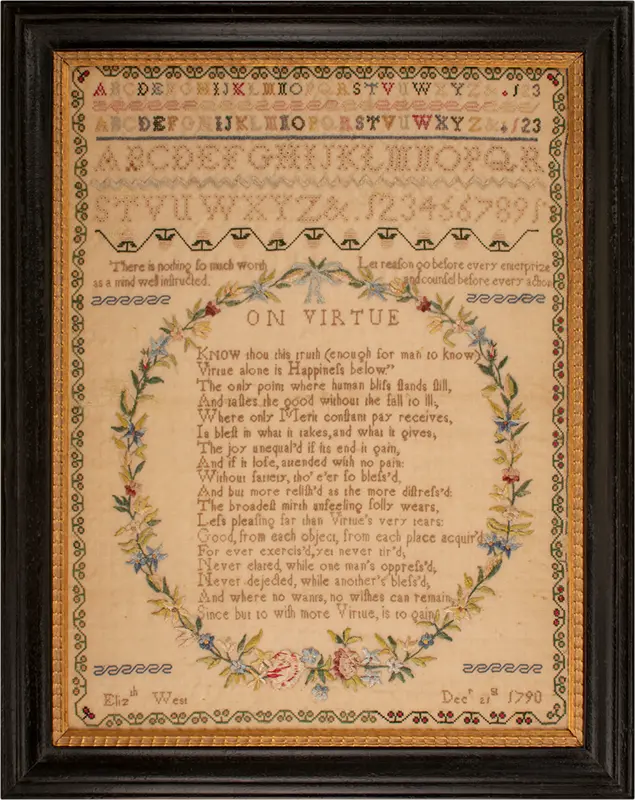 ABCDEFGHIJKLMNOPQRSTVUWXYZ&.ſ123
ABCDEFGHIJKLMNOPQRSTVUWXYZ&.ſ23
ABCDEFGHIJKLMNOPQR
STVUWXYZ&.ſ23456789ſ
There is nothing ſo much worth
as a mind well inſtructed.
Let reaſon go before every enterprize
and counſel before every action
ON VIRTUE
KNOW thou this truth (enough for man to know)
Virtue alone is Happineſs below."
The only point where human bliſs ſtands ſtill,
And taſtes the good without the fall to ill;
Where only Merit conſtant pay receives,
Is bleſt in what it takes, and what it gives;
The joy unequal'd if its end it gain,
And if it loſe, attended with no pain:
Without ſatiety, tho' e'er ſo bleſs'd,
And but more reliſh'd as the more diſtreſs'd:
The broadeſt mirth unfeeling folly wears,
Leſs pleaſing far than Virtue's very tears:
Good, from each object, from each place acquir'd
For ever exercis'd, yet never tir'd;
Never elated, while one man's oppreſs'd;
Never dejected, while another's bleſs'd;
And where no wants, no wiſhes can remain,
Since but to wiſh more Virtue, is to gain.
Elizth West
Decr 21st 1790